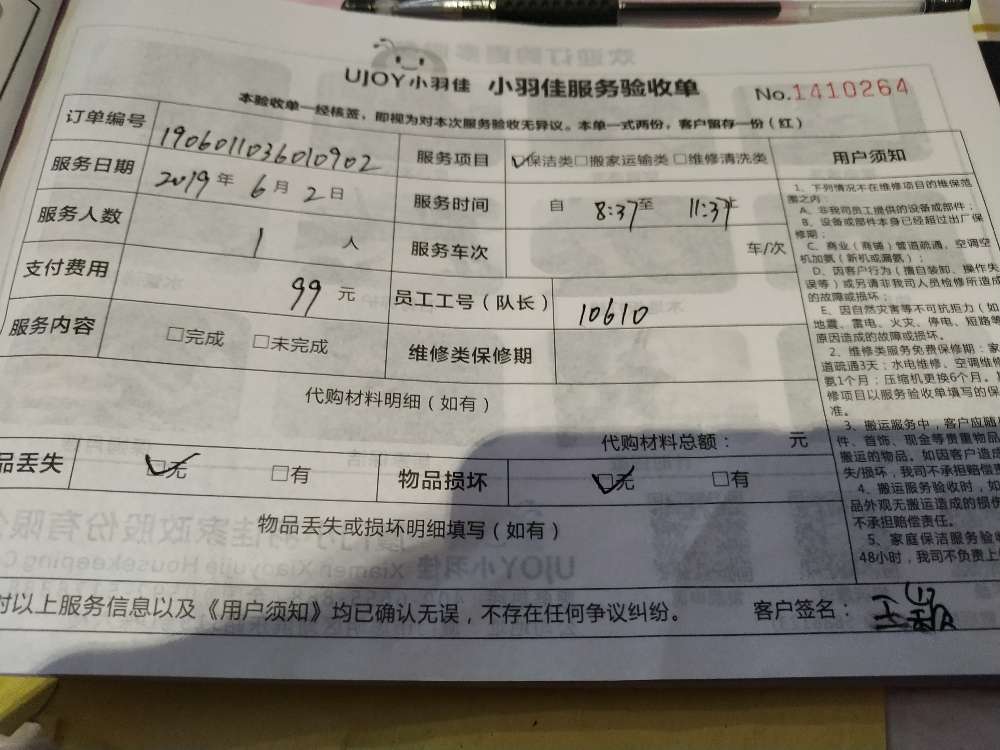 UJOY小羽佳 小羽佳服务验收单 No.1410264
本验收单一经核签，即视为对本次服务验收无异议。本单一式两份，客户留存一份（红）
订单编号 1906011036010902 服务项目 ☑保洁类□搬家运输类□维修清洗类 用户须知
服务日期 2019年6月2日 服务时间 自 8:37至 11:37止
服务人数 1 人 服务车次 车/次
支付费用 99 元 员工工号（队长） 10610
服务内容 □完成 □未完成 维修类保修期
代购材料明细（如有）
代购材料总额： 元
品丢失 ☑无 □有 物品损坏 ☑无 □有
物品丢失或损坏明细填写（如有）
对以上服务信息以及《用户须知》均已确认无误，不存在任何争议纠纷。 客户签名：
1、下列情况不在维修项目的维保范
围之内：
A、非我司员工提供的设备或部件；
B、设备或部件本身已经超过出厂保
修期；
C、商业（商铺）管道疏通，空调空
机加氨（新机或漏氨）；
D、因客户行为（擅自装卸、操作失
误等）或另请非我司人员检修所造成
的故障或损坏；
E、因自然灾害等不可抗拒力（如
地震、雷电、火灾、停电、短路等
原因造成的故障或损坏。
2、维修类服务免费保修期：家
道疏通3天；水电维修、空调维修
氨1个月；压缩机更换6个月。
修项目以服务验收单填写的保
准。
3、搬运服务中，客户应随
件、首饰、现金等贵重物品
搬运的物品。如因客户造成
失/损坏，我司不承担赔偿责
4、搬运服务验收时，如
品外观无搬运造成的损伤
不承担赔偿责任。
5、家庭保洁服务验收
48小时，我司不负责上